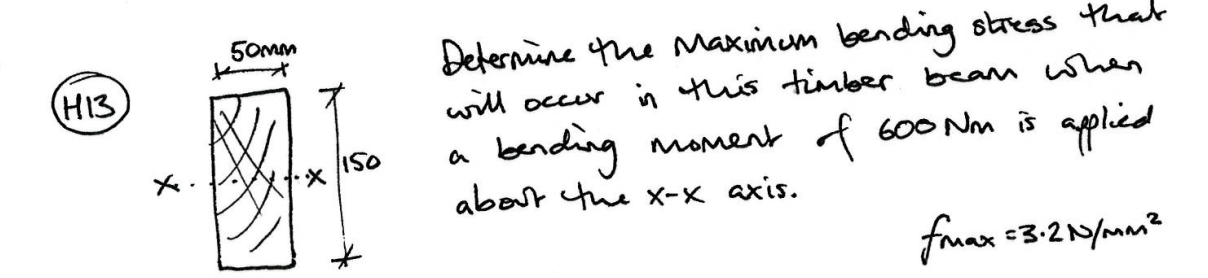 H13
50mm
150
x
x
Determine the Maximum bending stress that
will occur in this timber beam when
a bending moment of 600 Nm is applied
about the x-x axis.
fmax = 3.2 N/mm²